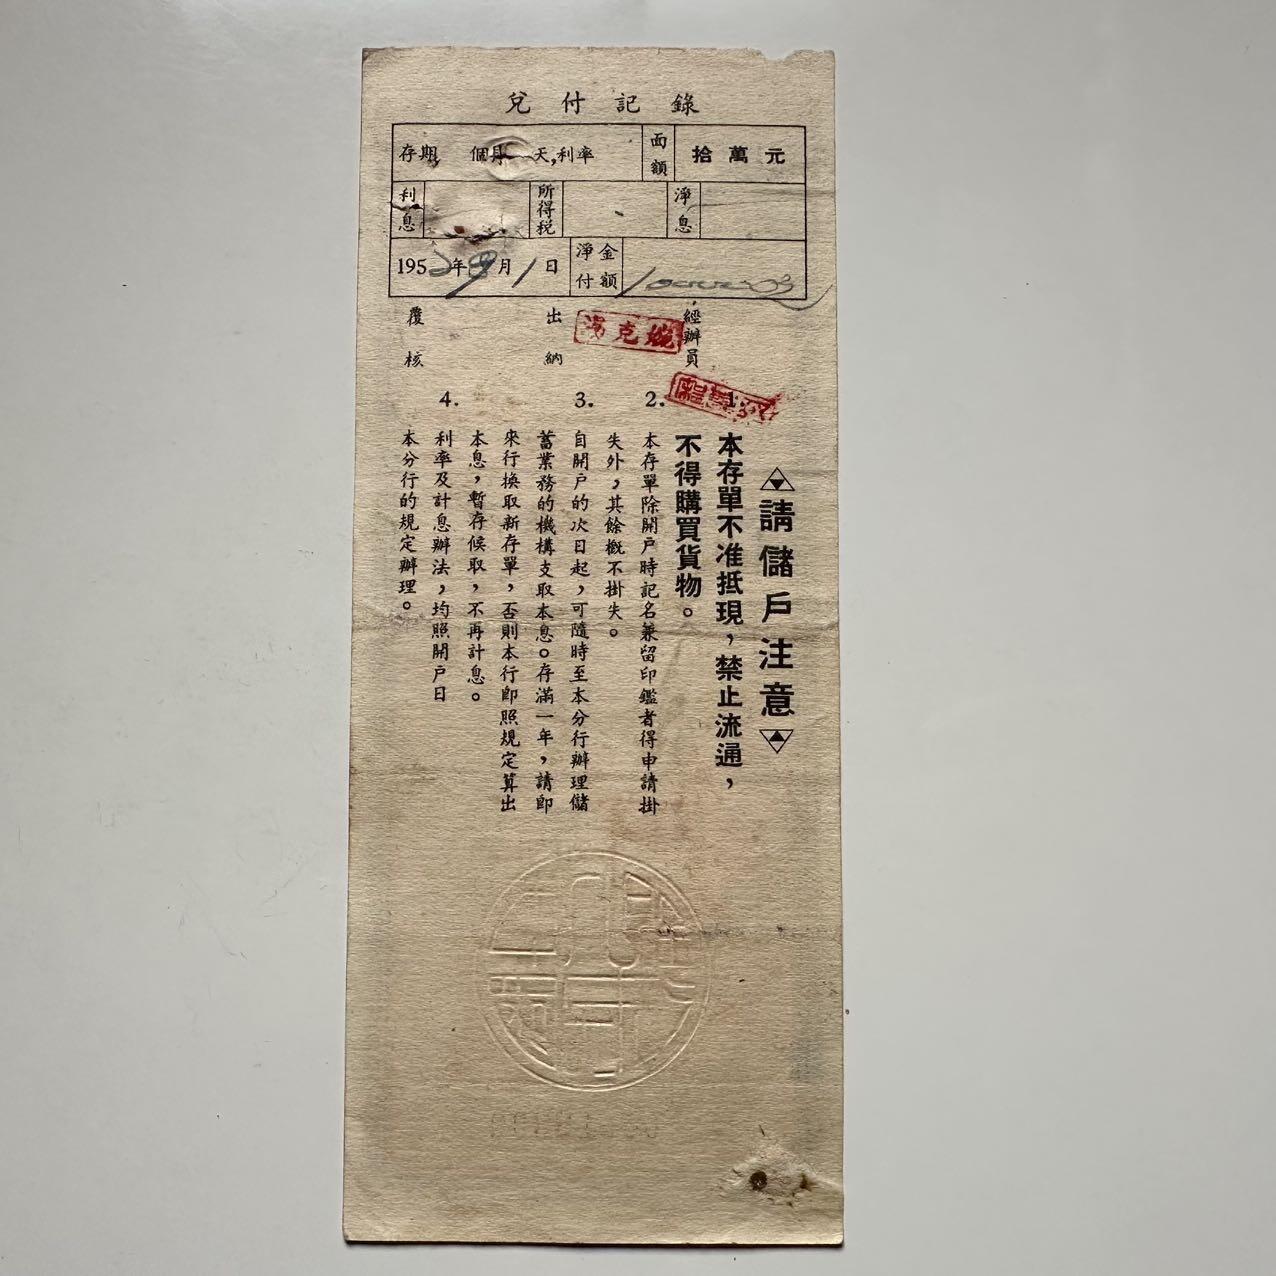 兌付記錄
存期, 個月 天,利率 面額 拾萬元
利息 所得稅 淨息
195 年9月1日 淨付金額
覆核 出納 經辦員
馮克婉
請儲戶注意
1. 本存單不准抵現，禁止流通，
不得購買貨物。
2. 本存單除開戶時記名兼留印鑑者得申請掛
失外，其餘概不掛失。
3. 自開戶的次日起，可隨時至本分行辦理儲
蓄業務的機構支取本息。存滿一年，請即
來行換取新存單，否則本行即照規定算出
本息，暫存候取，不再計息。
4. 利率及計息辦法，均照開戶日
本分行的規定辦理。